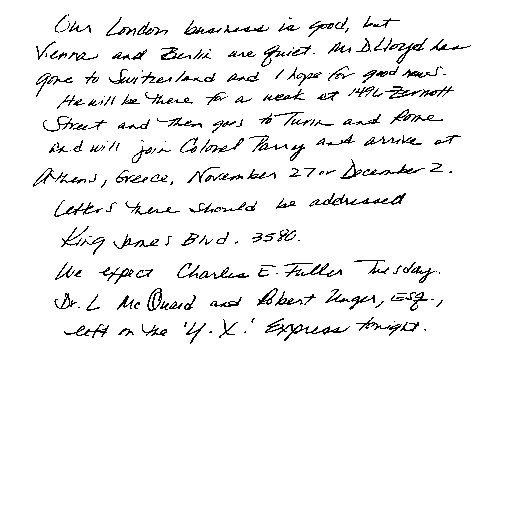 Our London business is good, but
Vienna and Berlin are quiet. Mr. D. Lloyd has
gone to Switzerland and I hope for good news.
He will be there for a week at 1496 Zermott
Street and then goes to Turin and Rome
and will join Colonel Parry and arrive at
Athens, Greece, November 27 or December 2.
Letters there should be addressed
King James Blvd. 3580.
We expect Charles E. Fuller Tuesday.
Dr. L McQuaid and Robert Unger, Esq.,
left on the 'Y.X.' Express tonight.